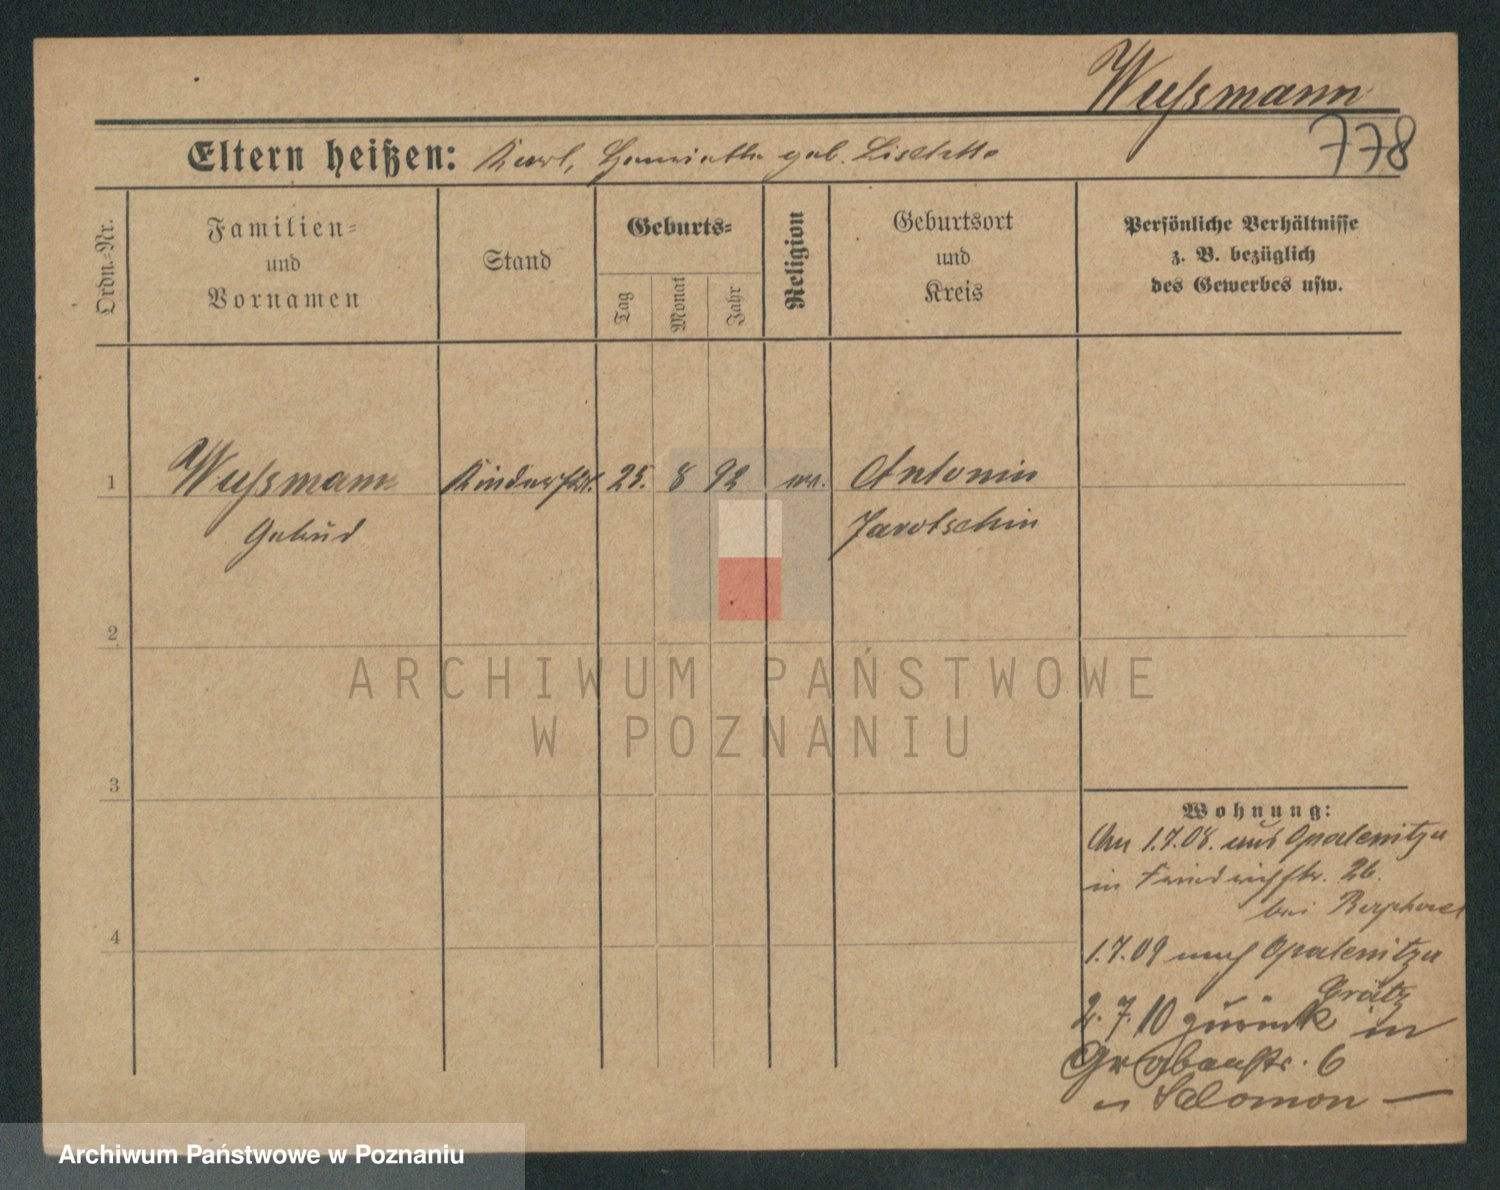 Wußmann
778
Eltern heißen: Karl, Henriette geb. Lischtke
Ordn.-Nr.
Familien-
und
Vornamen
Stand
Geburts-
Tag
Monat
Jahr
Religion
Geburtsort
und
Kreis
Persönliche Verhältnisse
z. B. bezüglich
des Gewerbes usw.
1
Wußmann
25. 8 92
Antonin
Jarotschin
2
ARCHIWUM PAŃSTWOWE
W POZNANIU
3
Wohnung:
1.7.08. aus Opalenitza
in Friedrichstr. 26.
bei
4
1.7.09 nach Opalenitza
Grätz
2.7.10 zurück in
Grabenstr. 6
Salomon —
Archiwum Państwowe w Poznaniu